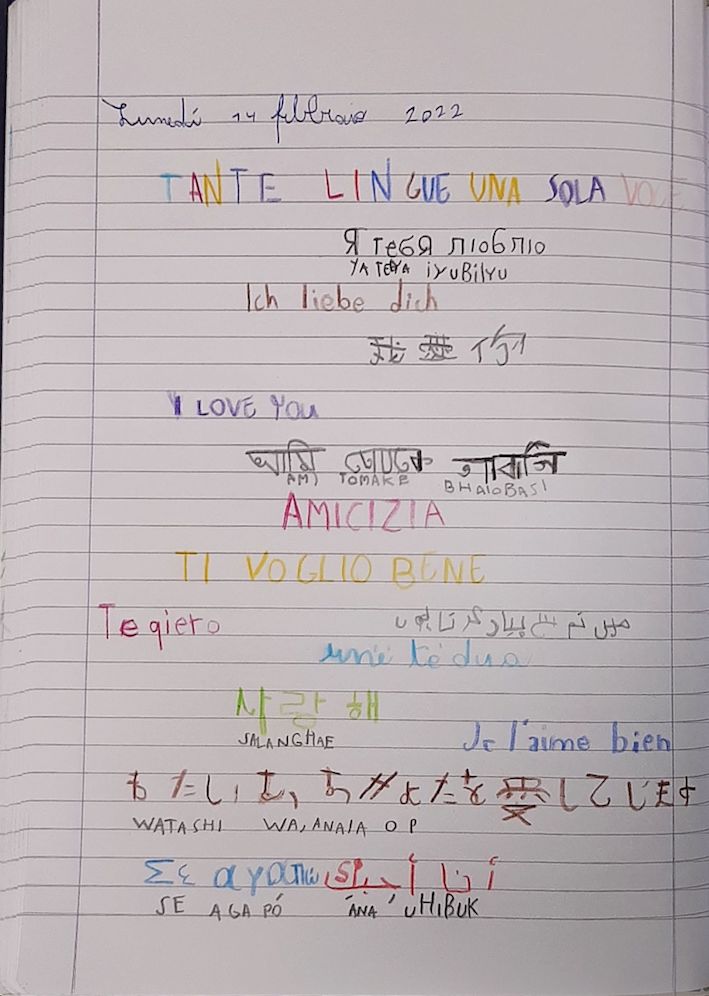 Lunedí 14 febbraio 2022
TANTE LINGUE UNA SOLA VOCE
Я тебя люблю
YA TEBYA iyuBilyu
Ich liebe dich
我 愛 你
I LOVE YOU
আমি তোমাকে
AMI TOMAKE BHALOBASI
AMICIZIA
TI VOGLIO BENE
Te qiero میں تم سے پیار کرتا ہوں
unë të dua
사랑해
SALANGHAE Je l'aime bien
わたしは、あなたを愛しています
WATASHI WA, ANATA O P
Σε αγαπώ أنا أحبك
SE AGAPÓ ÀNA 'UHIBUK